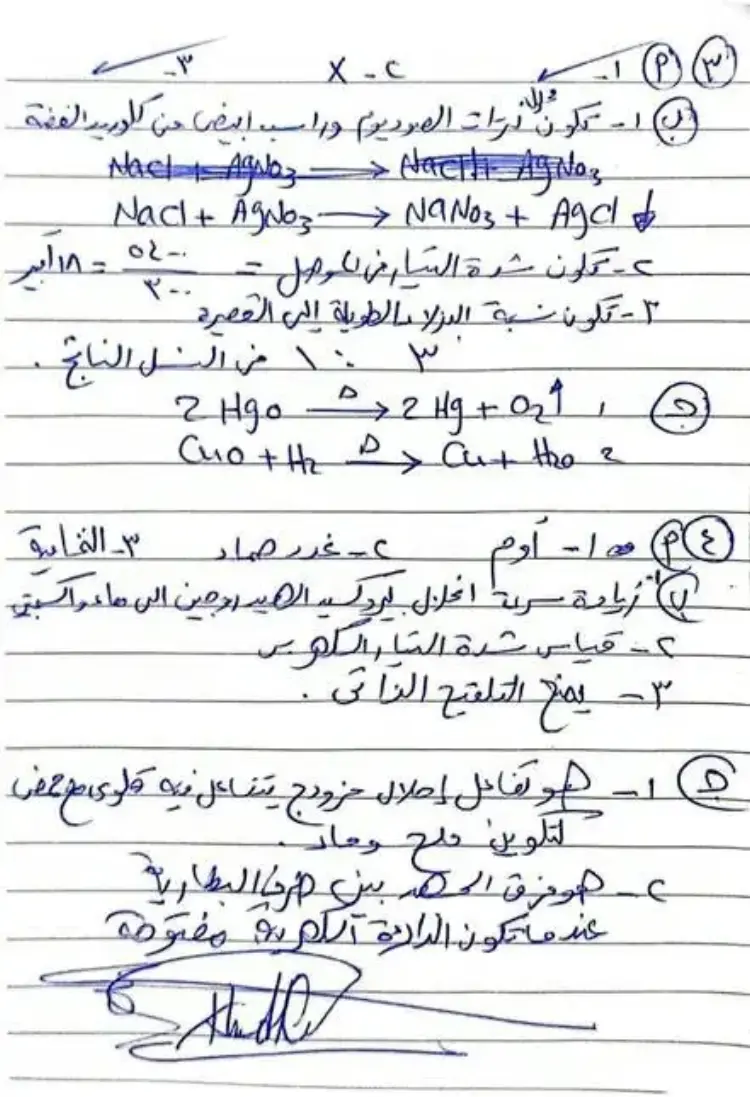 ٣ (٢) ١- ✓ ٢- X ٣- ✓
(ب) ١- تكون نترات الصوديوم وراسب ابيض من كلوريد الفضة
NaCl + AgNo3 → NaNo3 + AgCl ↓
٢- تكون شدة التيار في الموصل = ٥٤٠٠ / ٣٠٠ = ١٨ أمبير
٣- تكون نسبة البازلاء الطويلة إلى القصيرة
٣ : ١ في النسل الناتج .
(ج) ١ 2 Hgo →Δ 2 Hg + O2 ↑
٢ CuO + H2 →Δ Cu + H2o
٤ (٢) ١- أوم ٢- غدد صماء ٣- الثمانية
(ب) ١- زيادة سرعة انحلال فوق أكسيد الهيدروجين الى ماء واكسجين
٢- قياس شدة التيار الكهربى
٣- يمنع التلقيح الذاتى .
(ج) ١- هو تفاعل إحلال مزدوج يتفاعل فيه قلوى مع حمض
لتكوين ملح وماء .
٢- هو فرق الجهد بين طرفى البطارية
عندما تكون الدائرة الكهربية مفتوحة